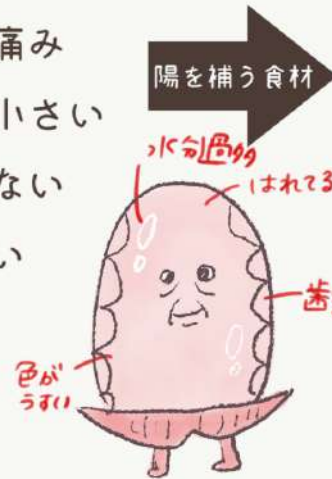 痛み
小さい
ない
い
陽を補う食材
水分過多
はれてる
歯
色が
うすい